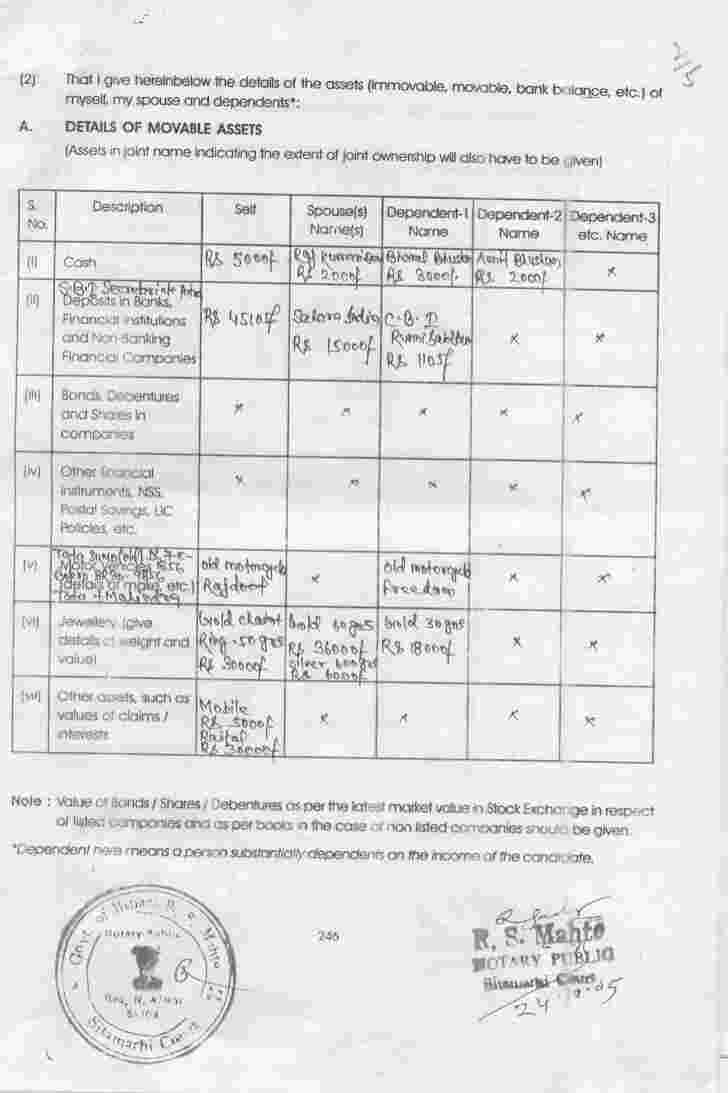 2/5
(2) That I give hereinbelow the details of the assets (immovable, movable, bank balance, etc.) of
myself, my spouse and dependents*:
A. DETAILS OF MOVABLE ASSETS
(Assets in joint name indicating the extent of joint ownership will also have to be given)
S. No. Description Self Spouse(s) Name(s) Dependent-1 Name Dependent-2 Name Dependent-3 etc. Name
(i) Cash
RS 5000/-
RS 2000/-
RS 3000/-
RS 2000/-
x
(ii) S.B.I
Deposits in Banks,
Financial Institutions
and Non-Banking
Financial Companies
RS 45105/-
Sahara India
RS 15000/-
C.B.I
RS 1105/-
x
x
(iii) Bonds, Debentures
and Shares in
companies
x
x
x
x
x
(iv) Other financial
instruments, NSS,
Postal Savings, LIC
Policies, etc.
x
x
x
x
x
(v)
Motor Vehicles
(details of make, etc.)
old motorcycle
Rajdoot
x
old motorcycle
freedom
x
x
(vi) Jewellery (give
details of weight and
value)
Ring 50 gms
RS 30000/-
Gold 60 gms
RS 36000/-
silver 600 gms
RS 6000/-
Gold 30 gms
RS 18000/-
x
x
(vii) Other assets, such as
values of claims /
interests
Mobile
RS 5000/-
RS 30000/-
x
x
x
x
Note : Value of Bonds / Shares / Debentures as per the latest market value in Stock Exchange in respect
of listed companies and as per books in the case of non listed companies should be given.
*Dependent here means a person substantially dependents on the income of the candidate.
246
Govt. of Bihar, R. S. Mahto
Notary Public
Sitamarhi Court
R. S. Mahto
NOTARY PUBLIC
Sitamarhi Court